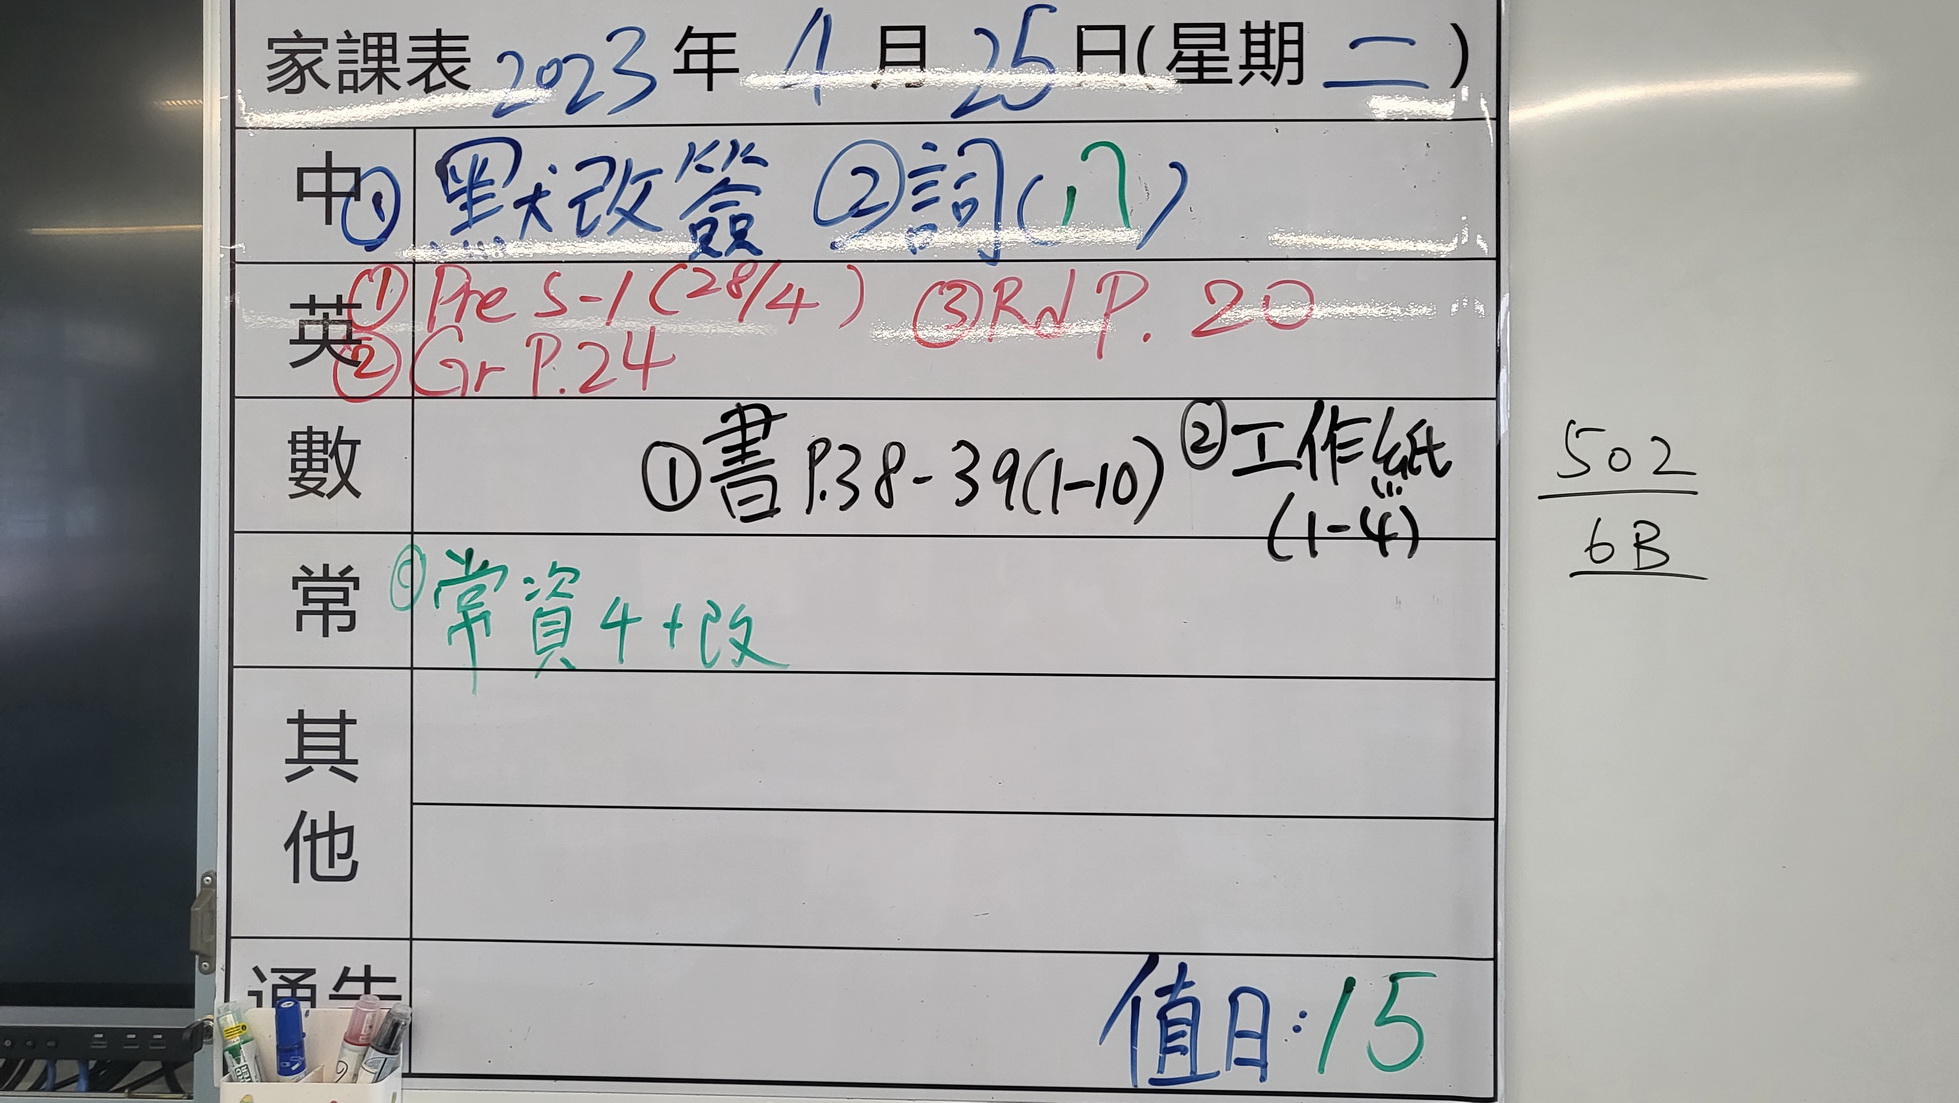 家課表 2023年 4月 25日(星期 二 )
中 ① 默改簽 ②詞(八)
英 ① Pre S-1 (28/4) ③Rd P. 20
② Gr P.24
數 ①書 P.38-39(1-10) ②工作紙
(1-4)
常 ① 常資 4 + 改
其他
通告 值日:15
502
6B